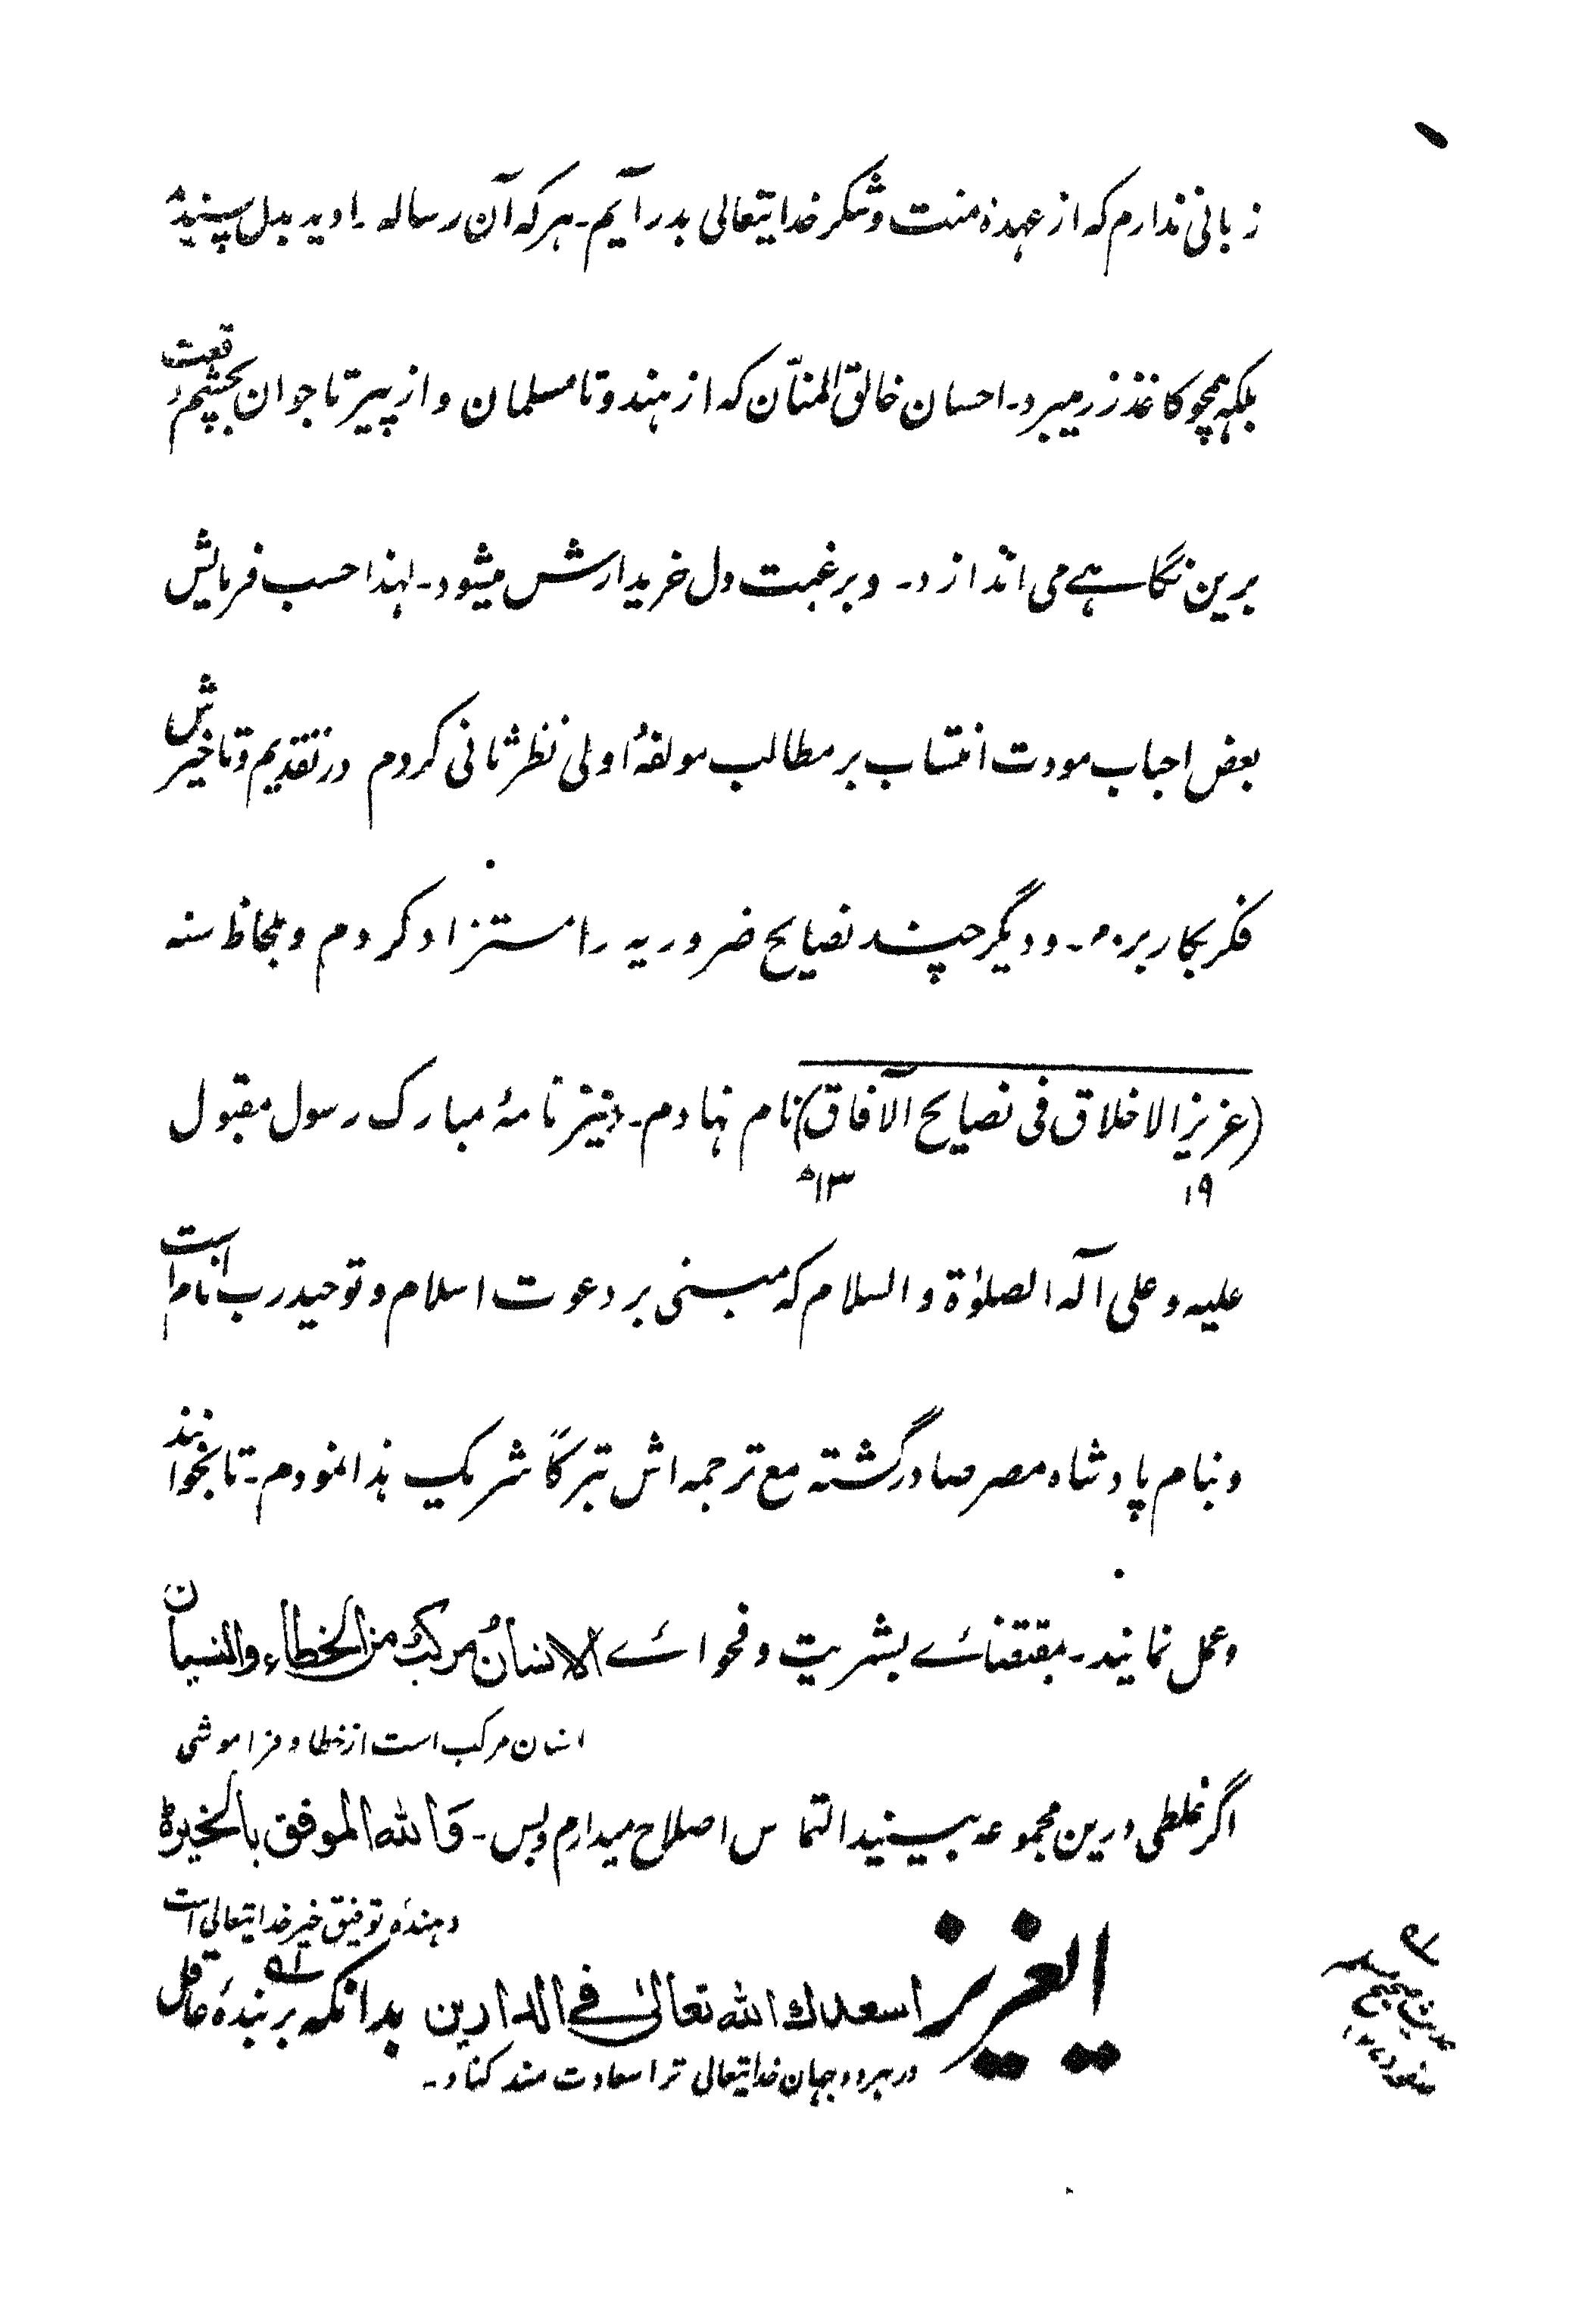 زبانی ندارم که از عهدۂ منت و شکر خدایتعالی بدر آیم۔ هر که آن رساله۔ ا دید بدل پسندید
بلکه همچو کاغذ زر میبرد۔ احسان خالق المنّان که از هندو تا مسلمان و از پیر تا جوان بچشم وقعت
برین نگاهے می اندازد۔ و برغبت دل خریدارش میشود۔ لهذا حسب فرمایش
بعض احباب مودت انتساب بر مطالب مولفۂ اولی نظر ثانی کردم در تقدیم و تاخیرش
فکر بکار بردم۔ و دیگر چند نصایح ضروریه را مستزاد کردم و بلحاظ سنه
(عزیز الاخلاق فی نصایح الآفاق) نام نهادم۔ و نیز نامۂ مبارک رسول مقبول
۱۹ ۱۳ھ
علیه و علی آله الصلوٰة و السلام که مبنی بر دعوت اسلام و توحید رب انام است
و بنام پادشاه مصر صادر گشته مع ترجمه اش تبرکاً شریک هذا نمودم۔ تا بخوانند
و عمل نمایند۔ بمقتضائے بشریت و فحوائے الانسانُ مرکبٌ من الخطاء والنسیان
انسان مرکب است از خطا و فراموشی
اگر غلطی درین مجموعه ببینید التماس اصلاح میدارم و بس۔ وَاللہ الموفق بالخیرۃ
دهندۂ توفیق خیر خدایتعالی است
ایعزیز اسعدك الله تعالىٰ فے الدارین بدانکه بر بندۂ عاقل
در هر دو جهان خدایتعالی ترا سعادت مند کناد۔